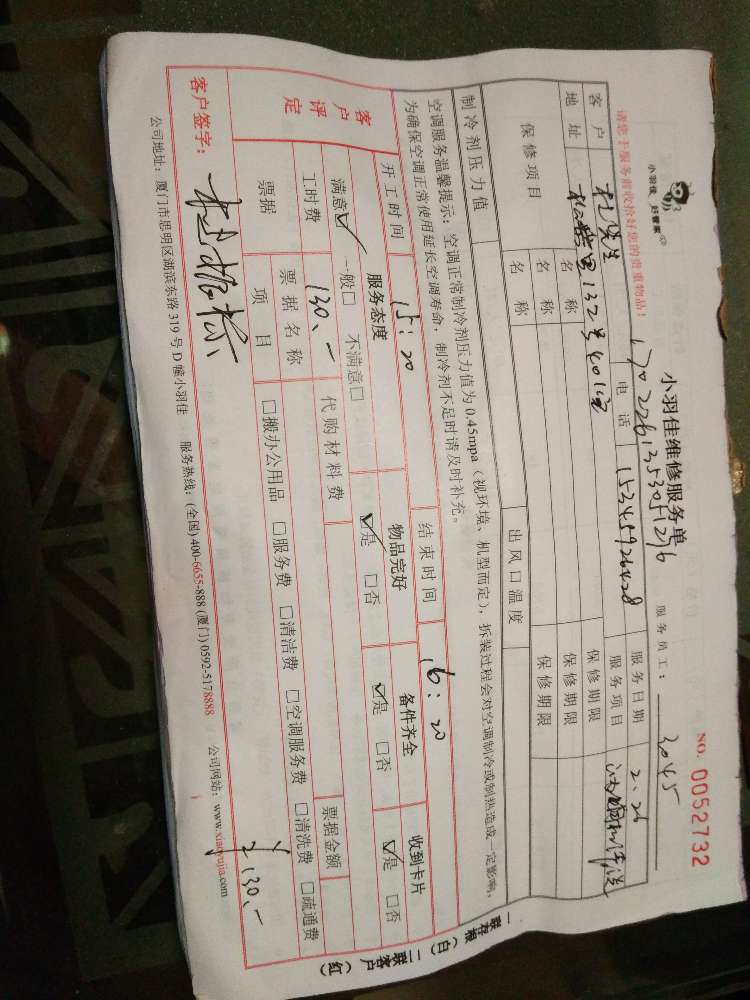 小羽佳 好管家
小羽佳维修服务单
NO. 0052732
服务员工： 3045
请您于服务前收拾好您的贵重物品！
客户 杜先生 电话 15345926428 服务日期 2.26
地址 132号401室 服务项目
保修项目 名称 保修期限
名称 保修期限
名称 保修期限
制冷剂压力值 出风口温度
空调服务温馨提示：空调正常制冷剂压力值为0.45mpa（视环境、机型而定），拆装过程会对空调制冷或制热造成一定影响，
为确保空调正常使用延长空调寿命，制冷剂不足时请及时补充。
开工时间 15：20 结束时间 16：20
客户评定 服务态度 物品完好 备件齐全 收到卡片
满意☑ 一般□ 不满意□ ☑是 □否 ☑是 □否 ☑是 □否
工时费 130、- 代购材料费
票据 票据名称 票据金额
项目 □搬办公用品 □服务费 □清洁费 □空调服务费 □清洗费 □疏通费
客户签字： ¥130、-
公司地址：厦门市思明区湖滨东路319号D幢小羽佳 服务热线：(全国)400-6655-888 (厦门)0592-5178888 公司网站：www.xiaoyujia.com
一联存根（白）二联客户（红）